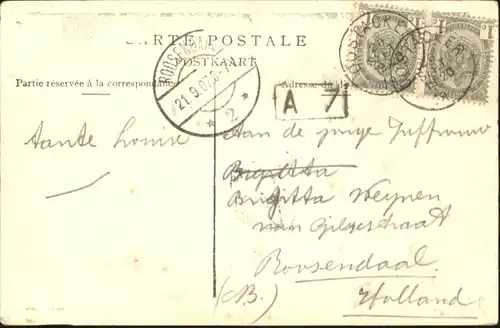 CARTE POSTALE
POSTKAART
Partie réservée à la correspondance
Adresse du
ROOSENDAAL
21.9.07
2
A 7
1
1
Tante Louise
Aan de jonge Juffrouw
Brigitta
Brigitta Weynen
van Gilsestraat
Roosendaal.
(N.B.) Holland